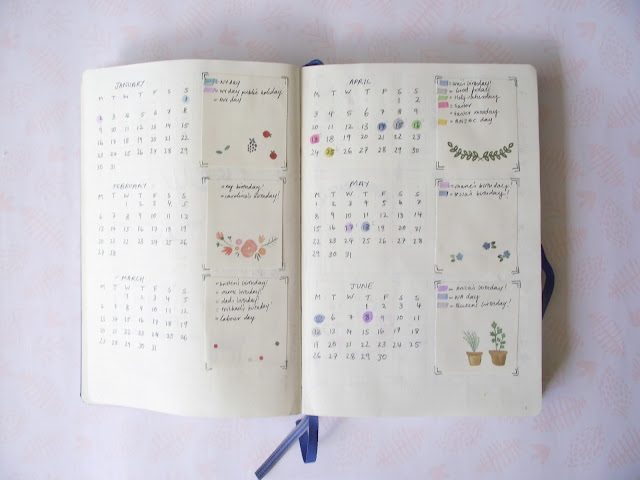 JANUARY
M T W T F S S
1
2 3 4 5 6 7 8
9 10 11 12 13 14 15
16 17 18 19 20 21 22
23 24 25 26 27 28 29
30 31
= NY day
= NY day public holiday
day
FEBRUARY
M T W T F S S
1 2 3 4 5
6 7 8 9 10 11 12
13 14 15 16 17 18 19
20 21 22 23 24 25 26
27 28
= my birthday!
= caroline's birthday!
MARCH
M T W T F S S
1 2 3 4 5
6 7 8 9 10 11 12
13 14 15 16 17 18 19
20 21 22 23 24 25 26
27 28 29 30 31
birthday!
birthday!
= dad's birthday!
= michael's birthday!
= labour day
APRIL
M T W T F S S
1 2
3 4 5 6 7 8 9
10 11 12 13 14 15 16
17 18 19 20 21 22 23
24 25 26 27 28 29 30
birthday!
= Good friday
= Holy saturday
= easter
= easter monday
= ANZAC day
MAY
M T W T F S S
1 2 3 4 5 6 7
8 9 10 11 12 13 14
15 16 17 18 19 20 21
22 23 24 25 26 27 28
29 30 31
birthday!
birthday!
JUNE
M T W T F S S
1 2 3 4
5 6 7 8 9 10 11
12 13 14 15 16 17 18
19 20 21 22 23 24 25
26 27 28 29 30
birthday!
= WA day
birthday!